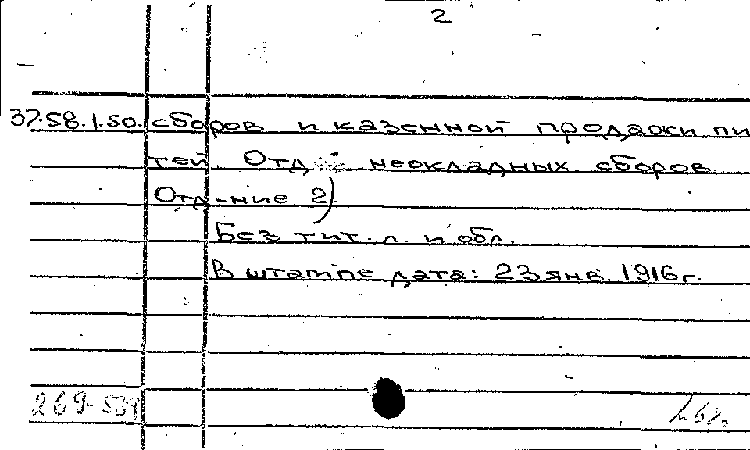 2
37.58.1.50. сборов и казенной продажи пи
тей. Отд. неокладных сборов
Отд-ние 2)
Без тит. л. и обл.
В штампе дата: 23 янв. 1916 г.
269-539